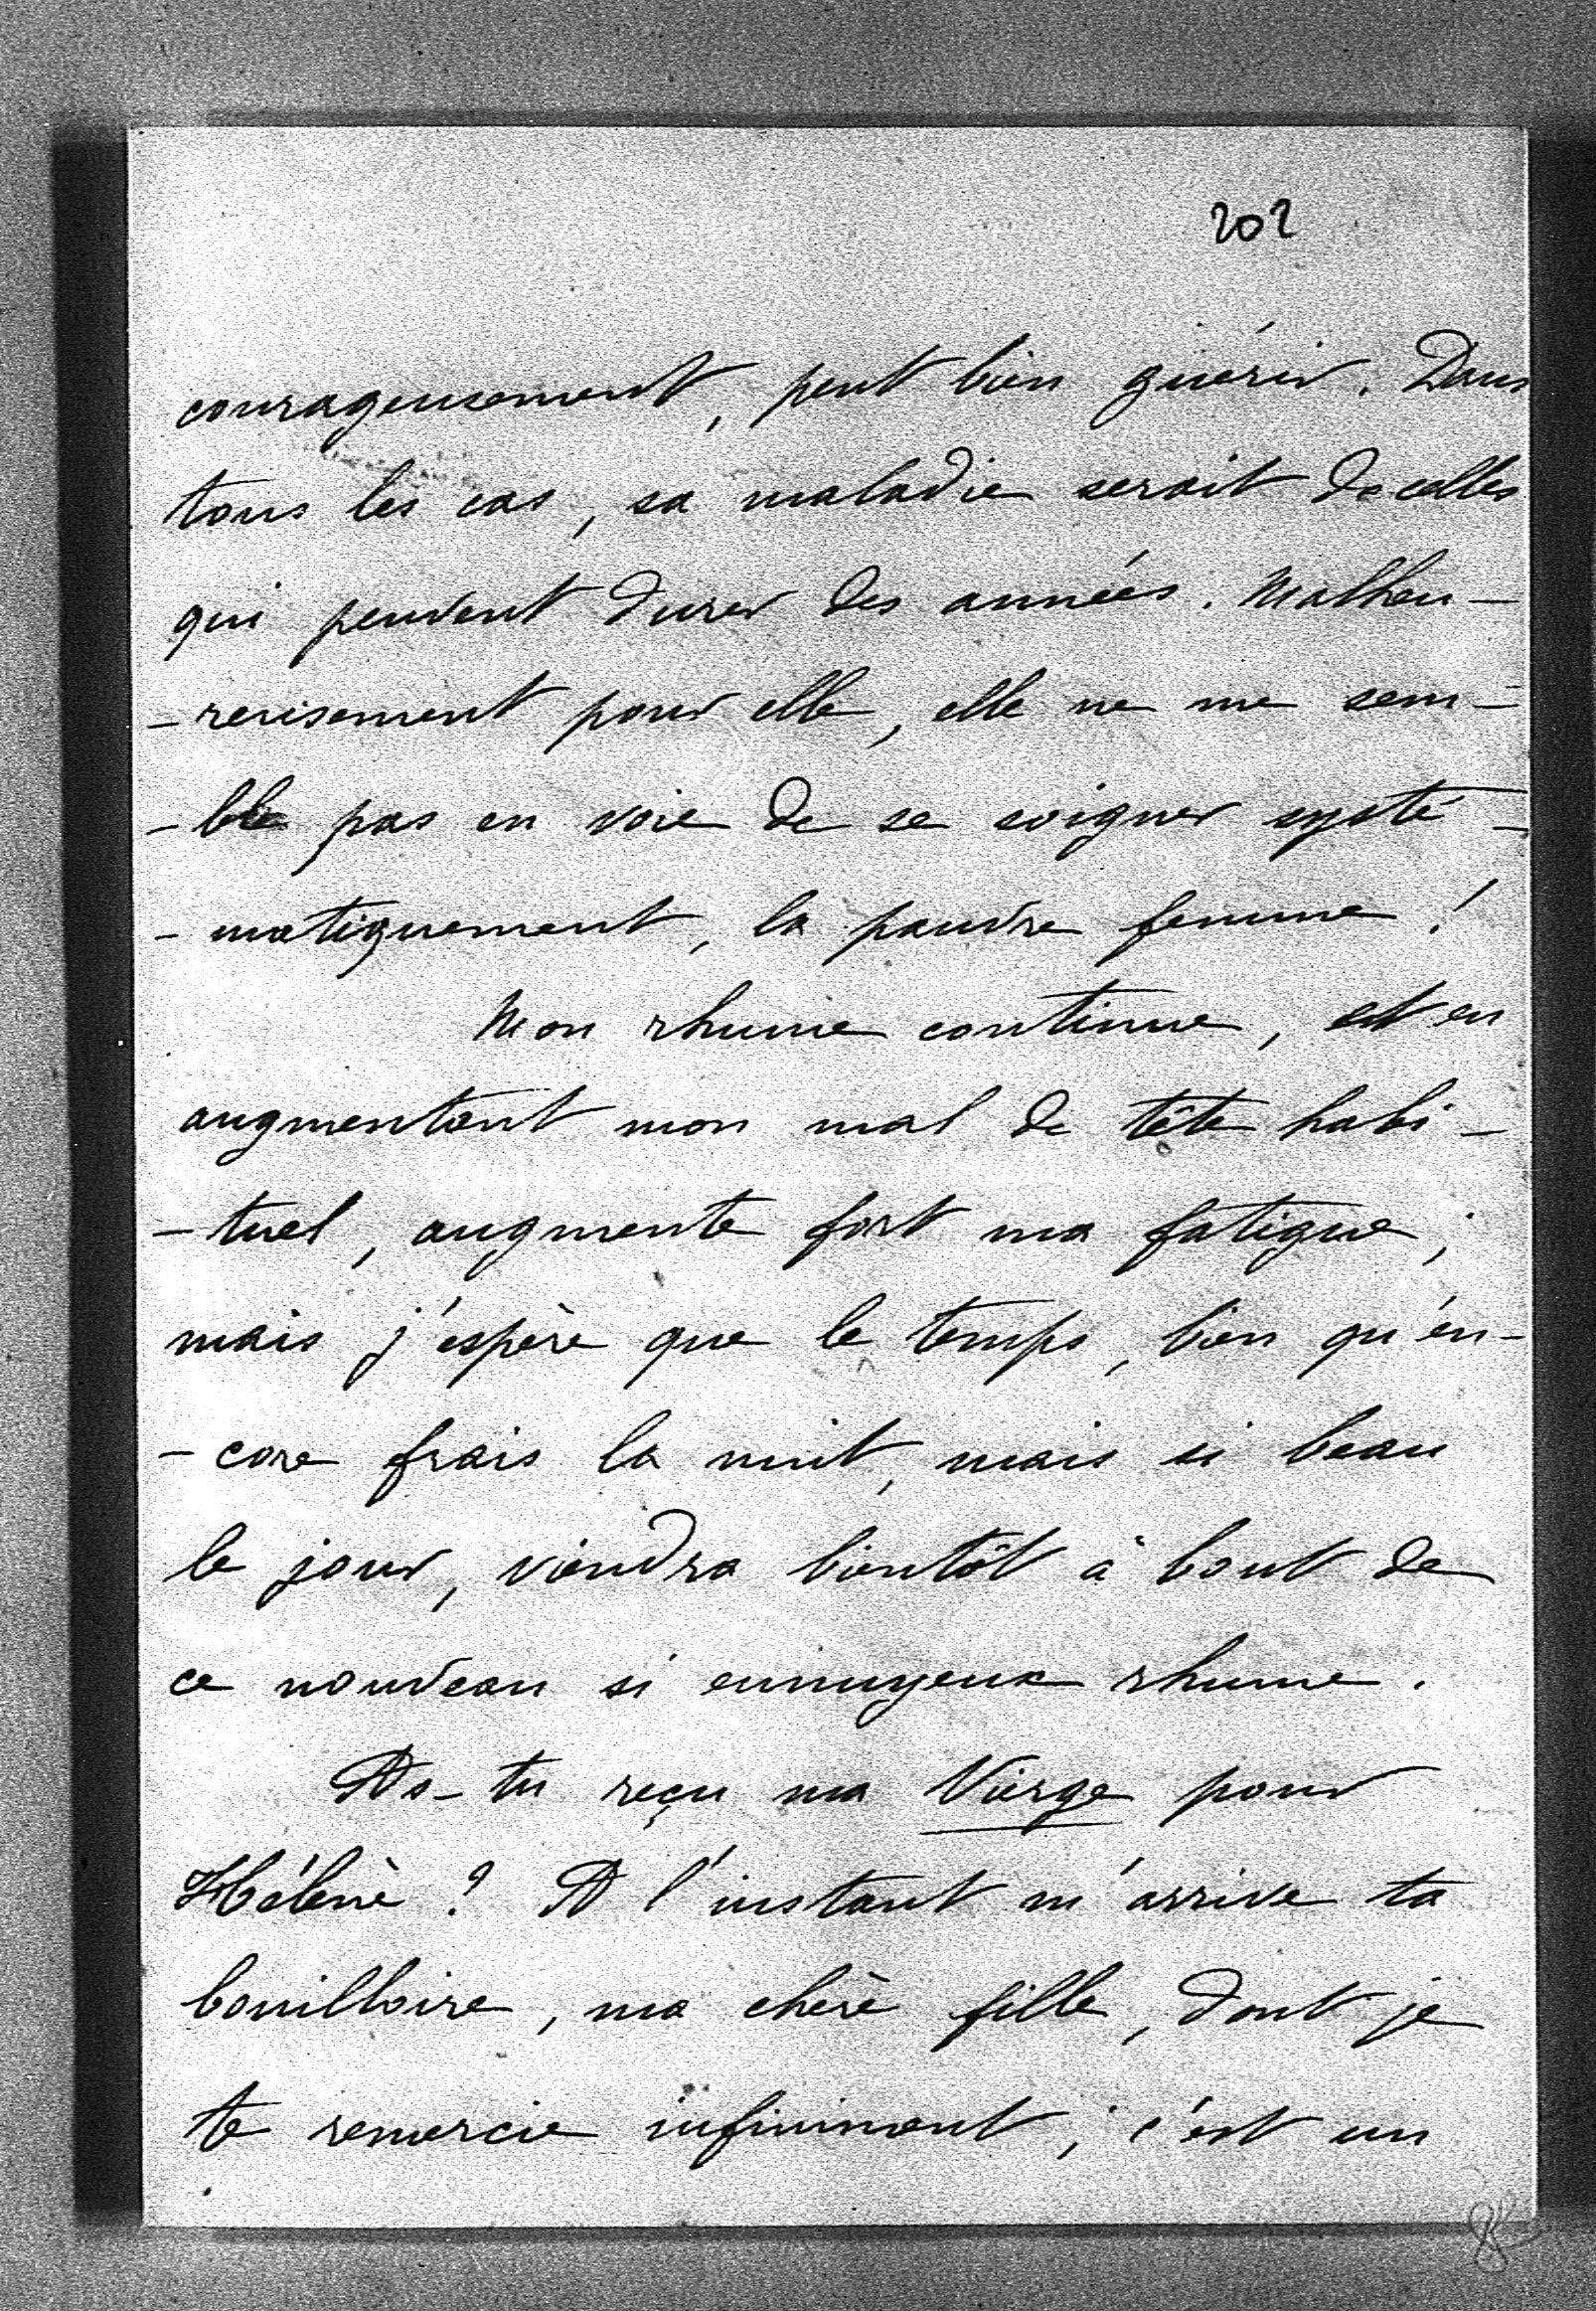 202
courageusement, peut bien guérir. Dans
tous les cas, sa maladie serait de celles
qui peuvent durer des années. Malheu-
-reusement pour elle, elle ne me sem-
-ble pas en voie de se soigner systé-
-matiquement, la pauvre femme !
Mon rhume continue, et en
augmentant mon mal de tête habi-
-tuel, augmente fort ma fatigue ;
mais j'espère que le temps, bien qu'en-
-core frais la nuit, mais si beau
le jour, viendra bientôt à bout de
ce nouveau si ennuyeux rhume.
As-tu reçu ma Vierge pour
Hélène ? A l'instant m'arrive ta
bouilloire, ma chère fille, dont je
te remercie infiniment ; c'est un